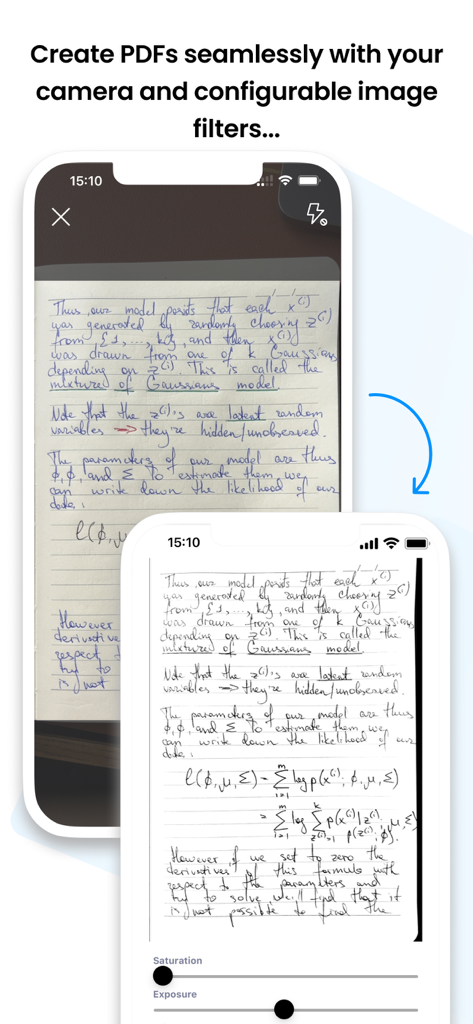 Create PDFs seamlessly with your
camera and configurable image
filters...
15:10
Thus, our model posits that each x⁽ⁱ⁾
was generated by randomly choosing z⁽ⁱ⁾
from {1,...,k}, and then x⁽ⁱ⁾
was drawn from one of k Gaussians
depending on z⁽ⁱ⁾. This is called the
mixture of Gaussians model.
Note that the z⁽ⁱ⁾'s are latent random
variables → they're hidden/unobserved.
The parameters of our model are thus
ϕ, and Σ. To estimate them, we
can write down the likelihood of our
data:
ℓ(ϕ,μ
However
derivative
respect
try to
is not
15:10
Thus, our model posits that each x⁽ⁱ⁾
was generated by randomly choosing z⁽ⁱ⁾
from {1,...,k}, and then x⁽ⁱ⁾
was drawn from one of k Gaussians
depending on z⁽ⁱ⁾. This is called the
mixture of Gaussians model.
Note that the z⁽ⁱ⁾'s are latent random
variables → they're hidden/unobserved.
The parameters of our model are thus
ϕ, and Σ. To estimate them, we
can write down the likelihood of our
data:
ℓ(ϕ,μ,Σ) = Σᵢ₌₁ᵐ log p(x⁽ⁱ⁾; ϕ,μ,Σ)
= Σᵢ₌₁ᵐ log Σ_{z⁽ⁱ⁾=1}ᵏ p(x⁽ⁱ⁾|z⁽ⁱ⁾; μ,Σ) p(z⁽ⁱ⁾; ϕ)
However if we set to zero the
derivatives of this formula with
respect to the parameters and
try to solve we'll find that it
is not possible to find the
Saturation
Exposure